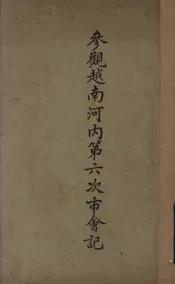 參觀越南河内第六次市會記